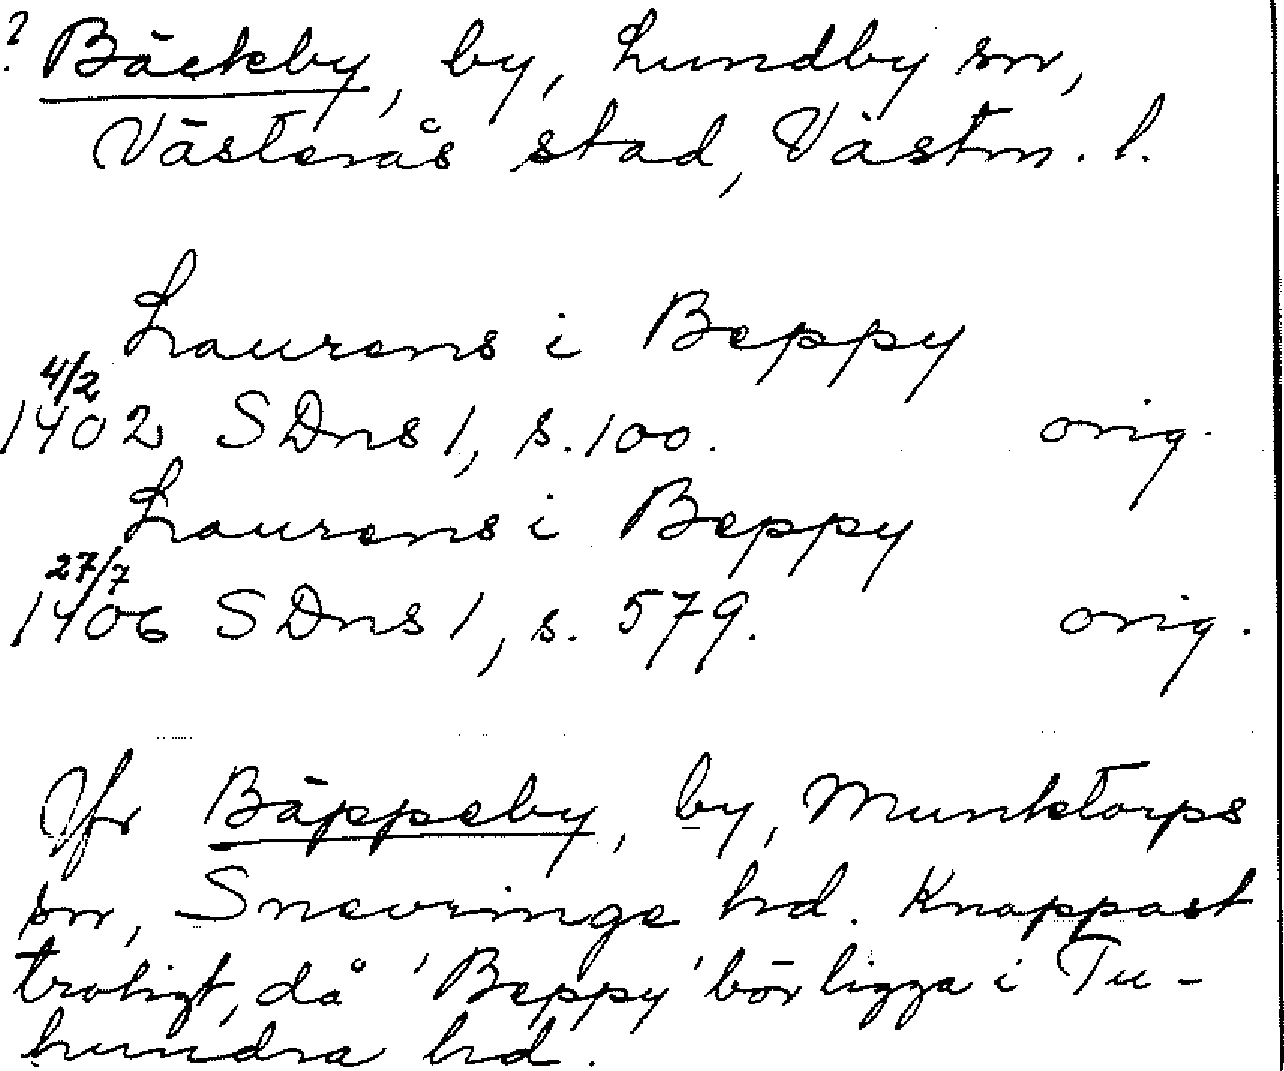 ? Bäckby, by, Lundby sn,
Västerås stad, Västm. l.
Laurens i Beppy
4/2
1402 SDns 1, s. 100. orig.
Laurens i Beppy
27/7
1406 SDns 1, s. 579. orig.
Jfr Bäppeby, by, Munktorps
sn, Snevringe hd. Knappast
troligt, då 'Beppy' bör ligga i Tu-
hundra hd.